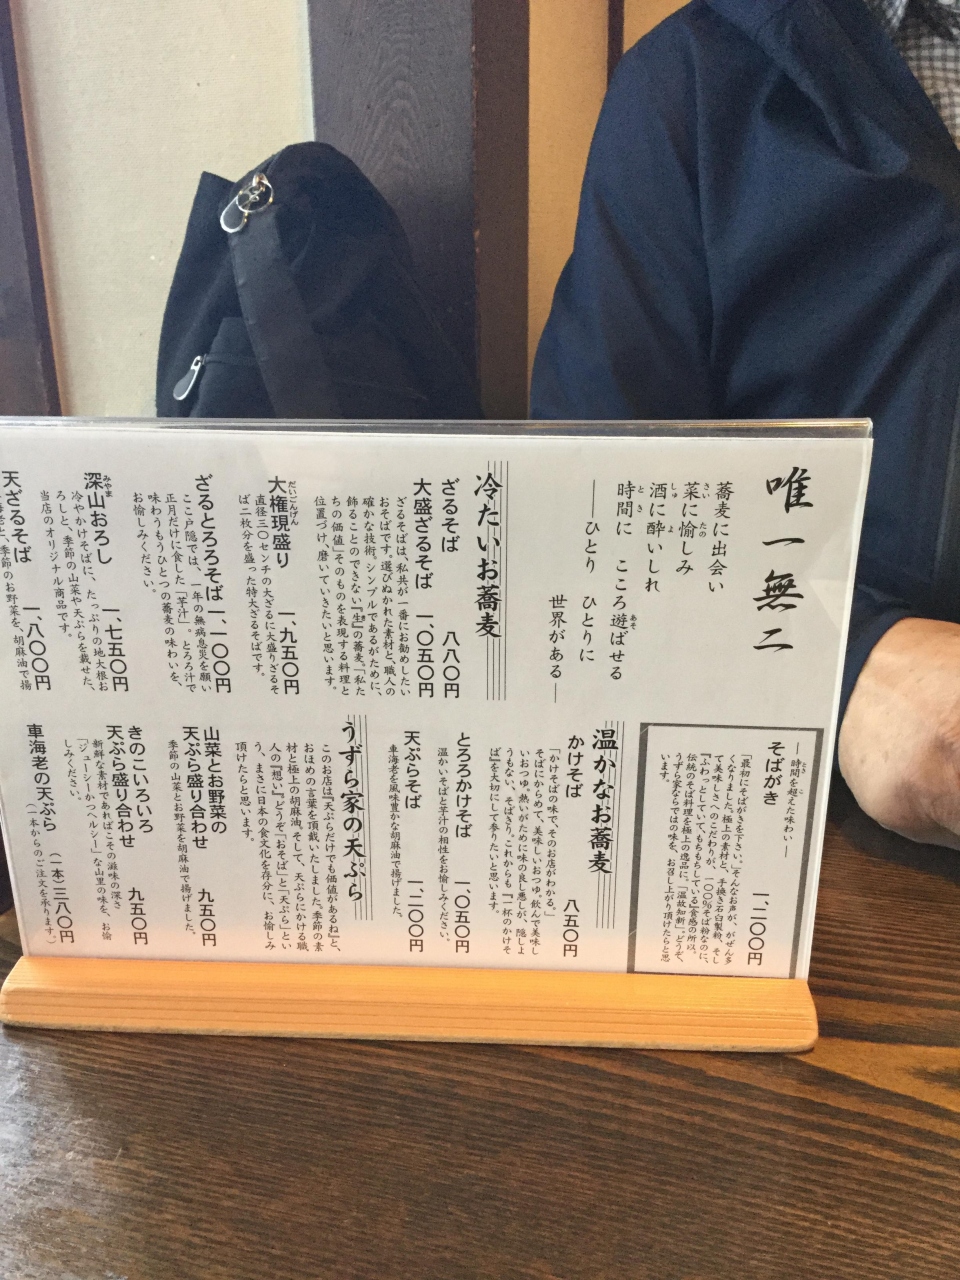 唯一無二
蕎麦に出会い
菜に愉しみ
酒に酔いしれ
時間に こころ遊ばせる
―ひとり ひとりに
世界がある―
冷たいお蕎麦
ざるそば 八八〇円
大盛ざるそば 一、〇五〇円
ざるそばは、私共が一番にお勧めしたい
おそばです。選びぬかれた素材と、職人の
確かな技術。シンプルであるがために、
飾ることのできない『生』の蕎麦。「私た
ちの価値」そのものを表現する料理と
位置づけ、磨いていきたいと思います。
大権現盛り 一、九五〇円
直径三〇センチの大ざるに大盛りざるそ
ば二枚分を盛った特大ざるそばです。
ざるとろろそば 一、一〇〇円
ここ戸隠では、一年の無病息災を願い
正月だけに食した「芋汁」。とろろ汁で
味わうもうひとつの蕎麦の味わいを、
お愉しみください。
深山おろし 一、七五〇円
冷やかけそばに、たっぷりの地大根お
ろしと、季節の山菜や天ぷらを載せた、
当店のオリジナル商品です。
天ざるそば 一、八〇〇円
季節のお野菜を、胡麻油で揚
―時間を超えた味わい―
そばがき 一、二〇〇円
「最初にそばがきを下さい。」そんなお声が、がぜん多
くなりました。極上の素材と、手挽き石臼製粉、そし
て美味しさへのこだわりが、一〇〇%そば粉なのに、
『ふわっとしていて、もちもちしている』食感の所以。
伝統のそば料理を極上の逸品に。「温故知新」。どうぞ、
うずら家ならではの味を、お召し上がり頂けたらと思
います。
温かなお蕎麦
かけそば 八五〇円
「かけそばの味で、そのお店がわかる。」
そばにからめて、美味しいおつゆ、飲んで美味し
いおつゆ。熱いがために味の良し悪しが、隠しよ
うもない、そばきり。これからも『一杯のかけそ
ば』を大切にして参りたいと思います。
とろろかけそば 一、〇五〇円
温かいそばと芋汁の相性をお愉しみください。
天ぷらそば 一、二〇〇円
車海老を風味豊かな胡麻油で揚げました。
うずら家の天ぷら
このお店は『天ぷらだけでも価値があるね』と、
おほめの言葉を頂戴いたしました。季節の素
材と極上の胡麻油。そして、天ぷらにかける職
人の『想い』。どうぞ「おそば」と「天ぷら」とい
う、まさに日本の食文化を存分に、お愉しみ
頂けたらと思います。
山菜とお野菜の
天ぷら盛り合わせ 九五〇円
季節の山菜とお野菜を胡麻油で揚げました。
きのこいろいろ
天ぷら盛り合わせ 九五〇円
新鮮な素材であればこその滋味の深さ
「ジューシーかつヘルシー」な山里の味を、お愉
しみください。
車海老の天ぷら (一本)三八〇円
(一本からのご注文を承ります。)